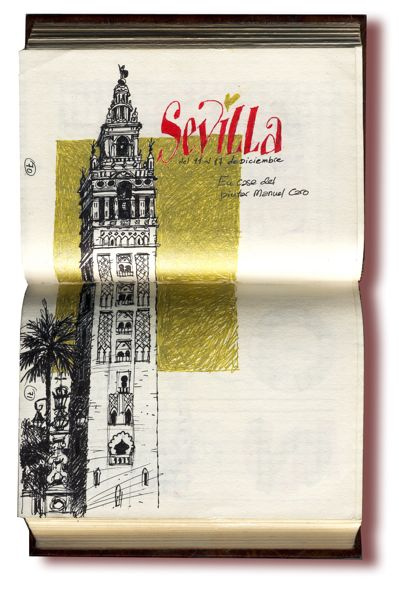 Sevilla
del 11 al 17 de Diciembre
En casa del
pintor Manuel Caro